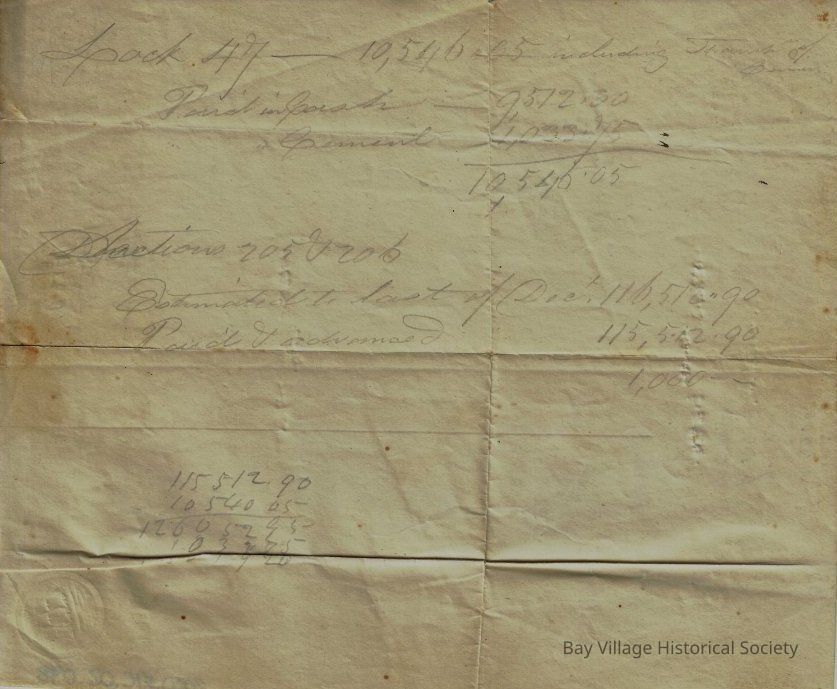 Lock 47 — 10,546.05 including
Paid in Cash — 9512.30
" Cement 1,033.75
10 546.05
Sections 205 & 206
Estimated to last of Decr. 116,512.90
Paid & advanced 115,512.90
1,000 —
115 512 90
10 540 05
1260 52 95
Bay Village Historical Society